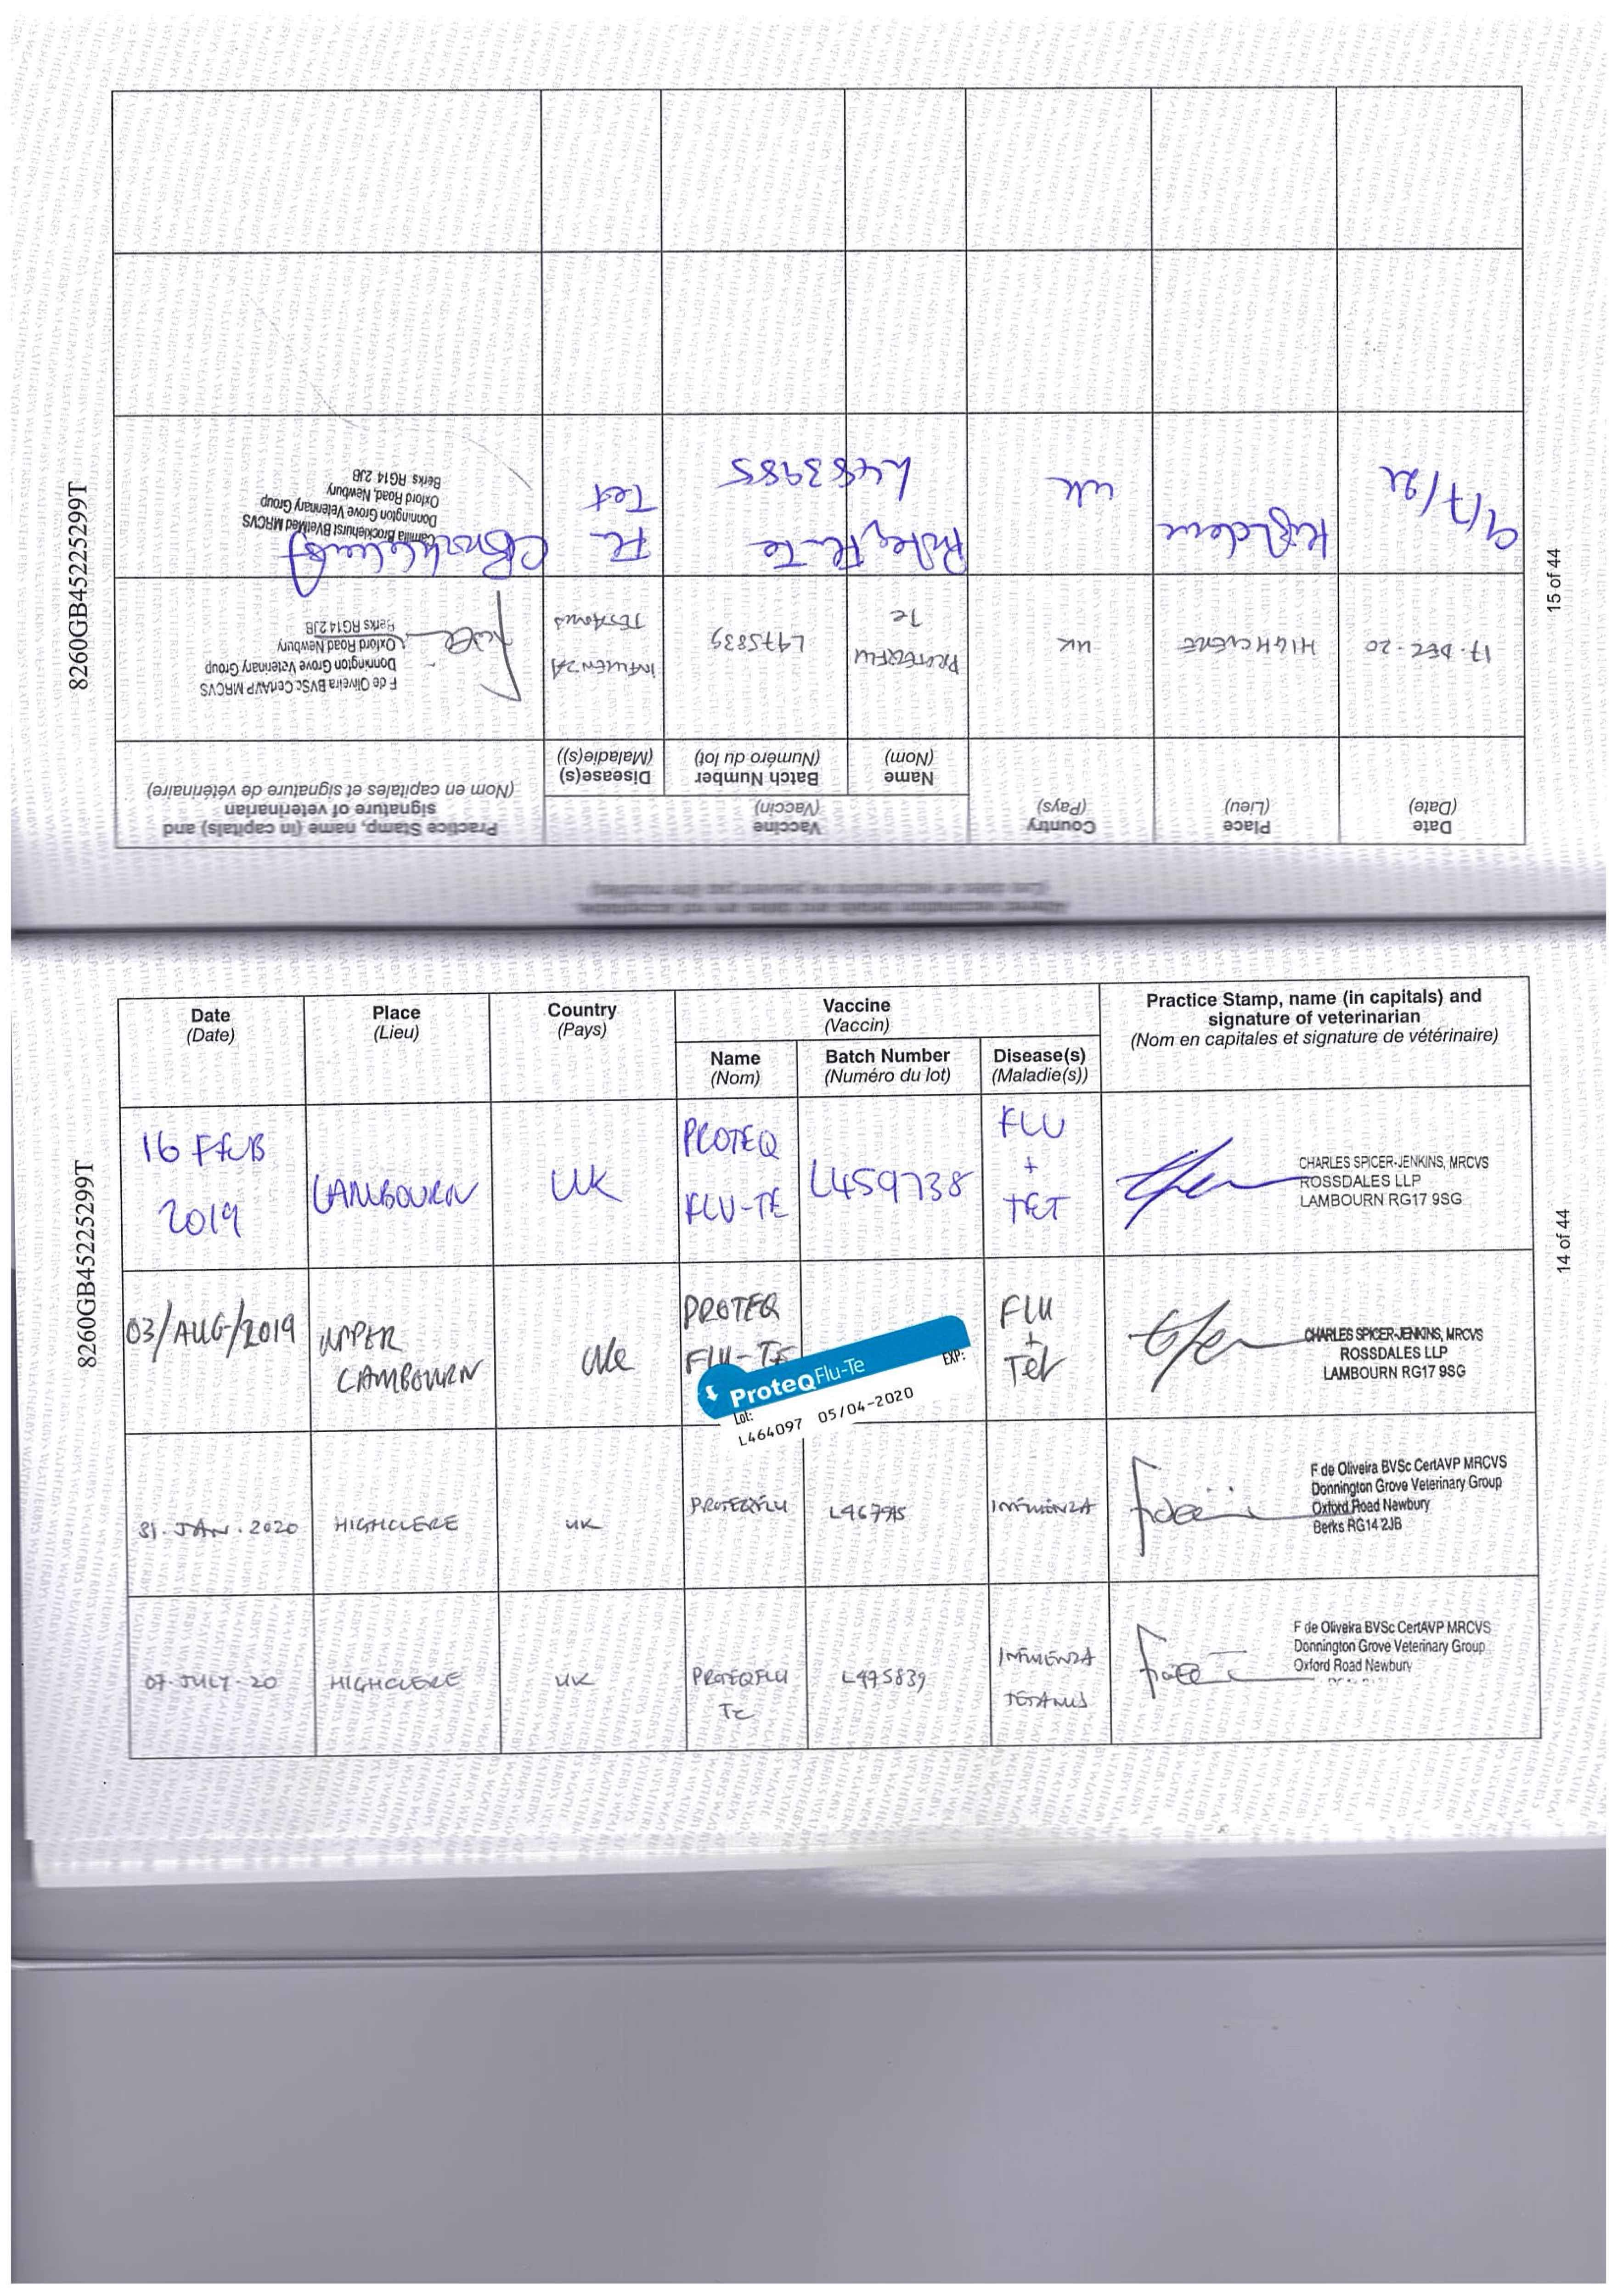 8260GB45225299T
14 of 44
Date
(Date)
Place
(Lieu)
Country
(Pays)
Vaccine
(Vaccin)
Name
(Nom)
Batch Number
(Numéro du lot)
Disease(s)
(Maladie(s))
Practice Stamp, name (in capitals) and
signature of veterinarian
(Nom en capitales et signature de vétérinaire)
16 FEB
2019
LAMBOURN
UK
PROTEQ
FLU-TE
L459738
FLU
+
TET
CHARLES SPICER-JENKINS, MRCVS
ROSSDALES LLP
LAMBOURN RG17 9SG
03/AUG/2019
UPPER
LAMBOURN
UK
PROTEQ
FLU-TE
ProteqFlu-Te
Lot:
EXP:
L464097 05/04-2020
FLU
+
TET
CHARLES SPICER-JENKINS, MRCVS
ROSSDALES LLP
LAMBOURN RG17 9SG
31. JAN. 2020
HIGHCLERE
UK
PROTEQFLU
INFLUENZA
F de Oliveira BVSc CertAVP MRCVS
Donnington Grove Veterinary Group
Oxford Road Newbury
Berks RG14 2JB
07. JULY. 20
HIGHCLERE
UK
PROTEQFLU
TE
L475839
INFLUENZA
TETANUS
F de Oliveira BVSc CertAVP MRCVS
Donnington Grove Veterinary Group
Oxford Road Newbury
8260GB45225299T
15 of 44
Date
(Date)
Place
(Lieu)
Country
(Pays)
Vaccine
(Vaccin)
Name
(Nom)
Batch Number
(Numéro du lot)
Disease(s)
(Maladie(s))
Practice Stamp, name (in capitals) and
signature of veterinarian
(Nom en capitales et signature de vétérinaire)
17. DEC. 20
HIGHCLERE
UK
PROTEQFLU
TE
L475839
INFLUENZA
TETANUS
F de Oliveira BVSc CertAVP MRCVS
Donnington Grove Veterinary Group
Oxford Road Newbury
Berks RG14 2JB
9/7/21
Highclere
UK
Proteq Flu-Te
L483985
Flu
Tet
Camilla Brocklehurst BVetMed MRCVS
Donnington Grove Veterinary Group
Oxford Road, Newbury
Berks RG14 2JB